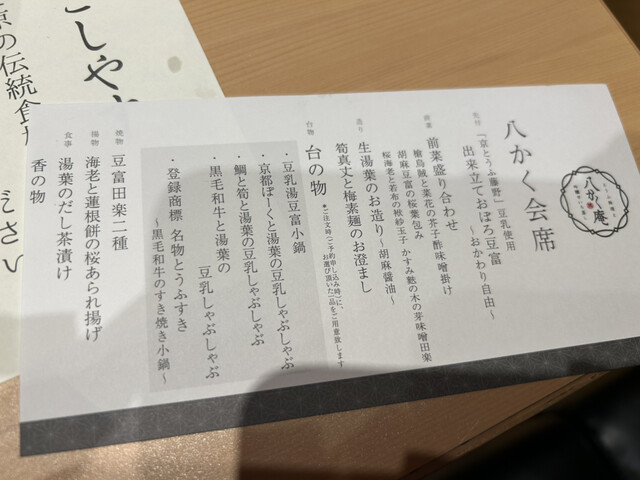 八かく庵
八かく会席
先付
「京とうふ藤野」豆乳使用
出来立ておぼろ豆富
～おかわり自由～
前菜
前菜盛り合わせ
檜烏賊と菜花の芥子酢味噌掛け
胡麻豆富の桜葉包み
かすみ麩の木の芽味噌田楽
桜海老と若布の袱紗玉子
造り
生湯葉のお造り～胡麻醤油～
筍真丈と梅素麺のお澄まし
台物
台の物
●ご注文時(ご予約申し込み時)に、
お選び頂いた一品をご用意致します
・豆乳湯豆富小鍋
・京都ぽーくと湯葉の豆乳しゃぶしゃぶ
・鯛と筍と湯葉の豆乳しゃぶしゃぶ
・黒毛和牛と湯葉の
豆乳しゃぶしゃぶ
・登録商標 名物とうふすき
～黒毛和牛のすき焼き小鍋～
焼物
豆富田楽二種
揚物
海老と蓮根餅の桜あられ揚げ
食事
湯葉のだし茶漬け
香の物
こしゃぶ
京の伝統食
ださい